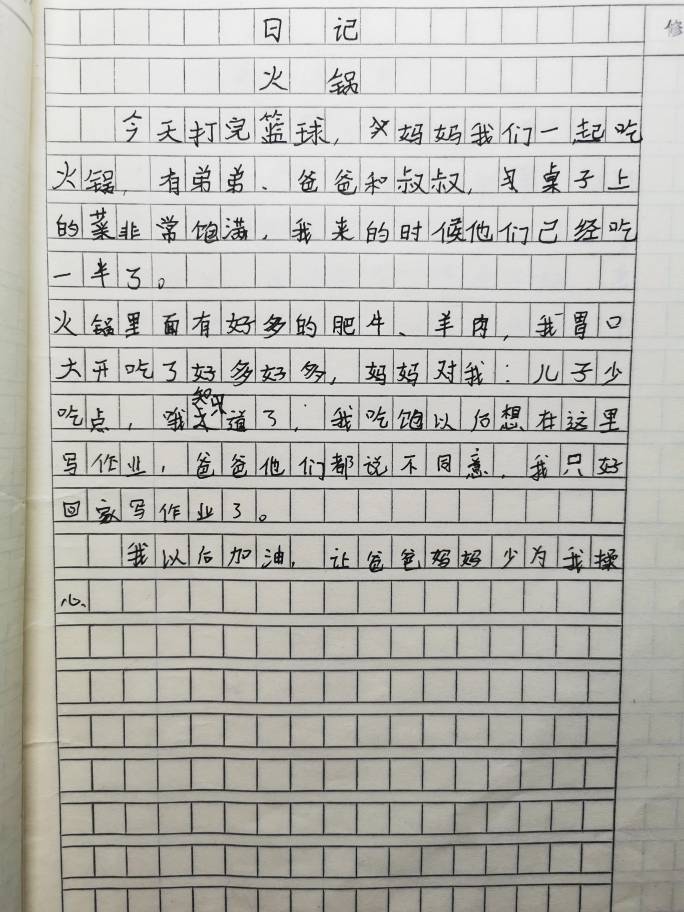 日记
修
火锅
今天打完篮球，妈妈我们一起吃
火锅，有弟弟、爸爸和叔叔，桌子上
的菜非常饱满，我来的时候他们已经吃
一半了。
火锅里面有好多的肥牛、羊肉，我胃口
大开吃了好多好多，妈妈对我：儿子少
吃点，哦知道了，我吃饱以后想在这里
写作业，爸爸他们都说不同意，我只好
回家写作业了。
我以后加油，让爸爸妈妈少为我操
心.